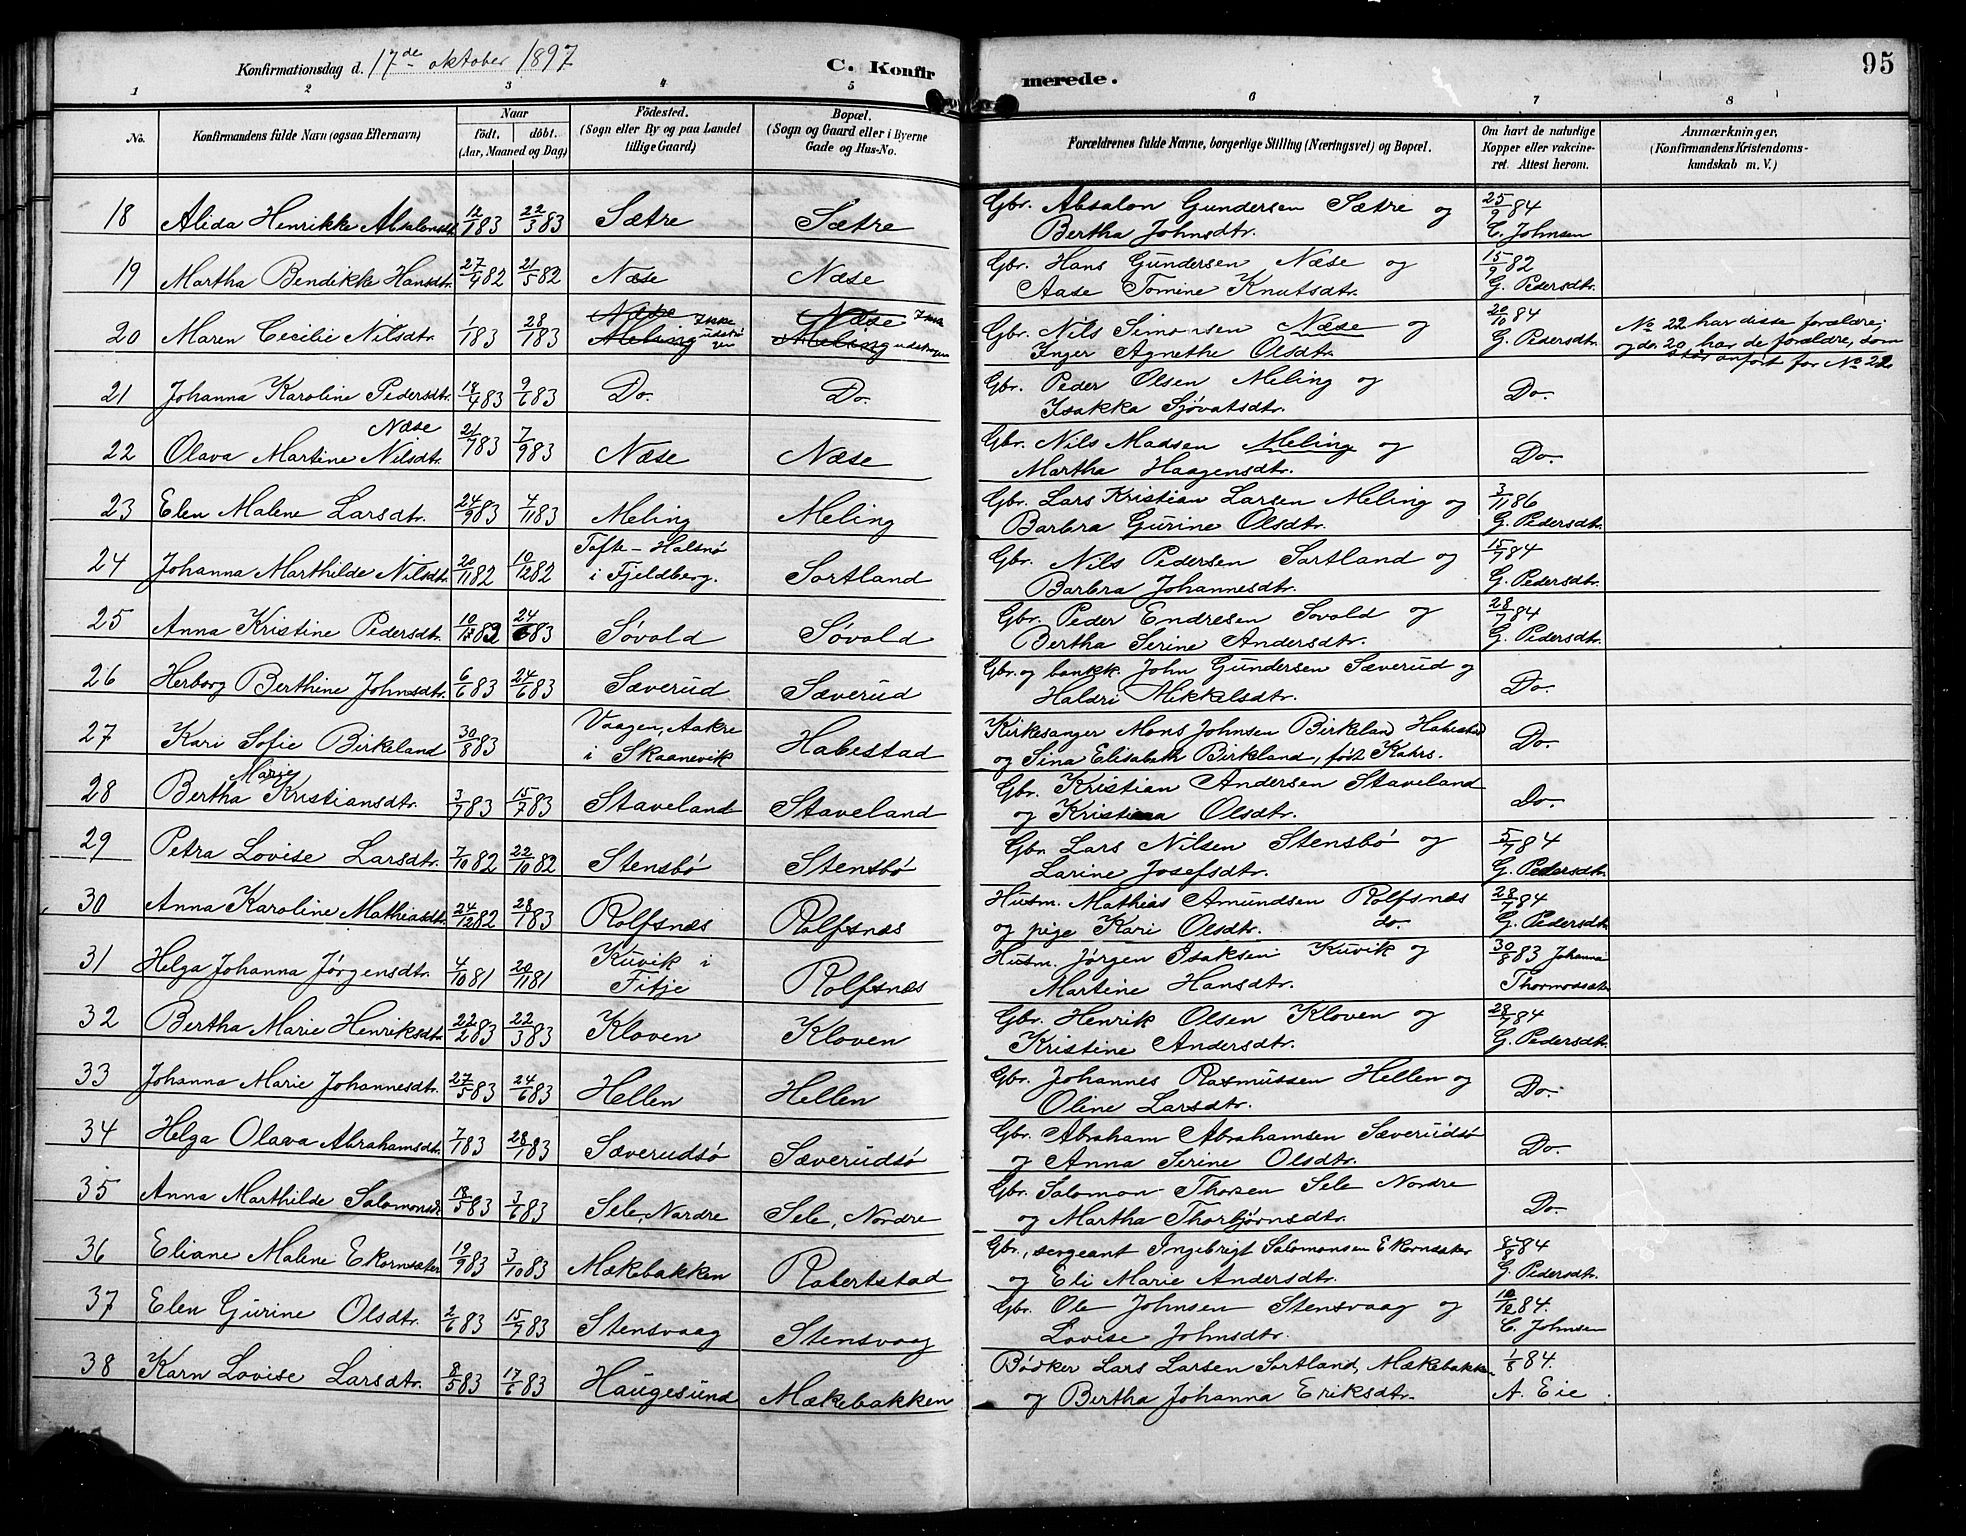 Konfirmationsdag d. 17de oktober 1897
C. Konfir merede.
95
1 2 3 4 5 6 7 8
No. Konfirmandens fulde Navn (ogsaa Efternavn) Naar födt. döbt. (Aar, Maaned og Dag) Födested. (Sogn eller By og paa Landet tillige Gaard) Bopæl. (Sogn og Gaard eller i Byerne Gade og Hus-No. Forældrenes fulde Navne, borgerlige Stilling (Næringsvei) og Bopæl. Om havt de naturlige Kopper eller vakcineret. Attest herom. Anmærkninger. (Konfirmandens Kristendomskundskab m. V.)
18 Alida Henrikke Absalonsdt. 12/1 83 22/3 83 Sætre Sætre Gbr. Absalon Gundersen Sætre og Bertha Johnsdtr. 25/9 84 C. Johnsen
19 Martha Bendikke Hansdtr. 27/4 82 21/5 82 Næse Næse Gbr. Hans Gundersen Næse og Aase Tomine Knutsdtr. 15/9 82 G. Pedersdtr.
20 Maren Cecilie Nilsdtr. 1/1 83 28/1 83 Næse Meling Ikke udstrøgen Næse Meling Ikke udstrøgen Gbr. Nils Simonsen Næse og Inger Agnethe Olsdtr. 20/10 84 G. Pedersdtr. No 22 har disse forældre; og do. 20 har de forældre, som står anført for No 22
21 Johanna Karoline Pedersdtr. 18/4 83 9/6 83 Do. Do. Gbr. Peder Olsen Meling og Isakka Sjövatsdtr. Do.
22 Olava Martine Næse Nilsdtr. 21/7 83 7/9 83 Næse Næse Gbr. Nils Madsen Meling og Martha Haagensdtr. Do.
23 Elen Malene Larsdtr. 24/9 83 4/11 83 Meling Meling Gbr. Lars Kristian Larsen Meling og Barbra Gurine Olsdtr. 3/11 86 G. Pedersdtr.
24 Johanna Marthilde Nilsdtr. 20/11 82 10/12 82 Tofte-Halsnö i Fjeldberg. Sortland Gbr. Nils Pedersen Sortland og Barbra Johannesdtr. 15/7 84 G. Pedersdtr.
25 Anna Kristine Pedersdtr. 24/6 83 Sövold Sövold Gbr. Peder Endresen Sovold og Bertha Serine Andersdtr. 28/7 84 G. Pedersdtr.
26 Herborg Berthine Johnsdtr. 6/6 83 24/6 83 Sæverud Sæverud Gbr. og bankk. John Gundersen Sæverud og Haldri Mikkelsdtr. Do.
27 Kari Sofie Birkeland 30/8 83 Vaagen, Aakre i Skaanevik Habestad Kirkesanger Mons Johnsen Birkeland Habestad og Sina Elisabeth Birkland, født Kahrs. Do.
28 Bertha Marie Kristiansdtr. 3/7 83 15/7 83 Staveland Staveland Gbr. Kristian Andersen Staveland og Kristina Olsdtr. Do.
29 Petra Lovise Larsdtr. 7/10 82 22/10 82 Stensbö Stensbö Gbr. Lars Nilsen Stensbö og Larine Josefsdtr. 5/7 84 G. Pedersdtr.
30 Anna Karoline Mathiasdtr. 24/12 82 28/1 83 Rolfsnæs Rolfsnæs Husm. Mathias Amundsen Rolfsnæs og pige Kari Olsdtr. do. 28/7 84 G. Pedersdtr.
31 Helga Johanna Jørgensdtr. 4/10 81 20/11 81 Kuvik i Fitje Rolfsnæs Husm. Jørgen Isaksen Kuvik og Martine Hansdtr. 30/8 83 Johanna Thormodsæter
32 Bertha Marie Henriksdtr. 22/2 83 22/3 83 Kloven Kloven Gbr. Henrik Olsen Kloven og Kristine Andersdtr. 28/7 84 G. Pedersdtr.
33 Johanna Marie Johannesdtr. 27/5 83 24/6 83 Hellen Hellen Gbr. Johannes Rasmussen Hellen og Oline Larsdtr. Do.
34 Helga Olava Abrahamsdtr. 7/1 83 28/1 83 Sæverudsö Sæverudsö Gbr. Abraham Abrahamsen Sæverudsö og Anna Serine Olsdtr. Do.
35 Anna Marthilde Salomonsdt. 18/5 83 3/6 83 Sele, Nordre Sele, Nordre Gbr. Salomon Thorsen Sele Nordre og Martha Thorbjørnsdtr. Do.
36 Eliane Malene Ekornsæter 19/9 83 3/10 83 Mækebakken Robertstad Gbr., sergeant Ingebrigt Salomonsen Ekornsæter og Eli Marie Andersdtr. 8/8 84 G. Pedersdtr.
37 Elen Gurine Olsdtr. 2/6 83 15/7 83 Stensvaag Stensvaag Gbr. Ole Johnsen Stensvaag og Lovise Johnsdtr. 10/12 84. C. Johnsen
38 Karn Lovise Larsdtr. 8/5 83 17/6 83 Haugesund Mækebakken Bödker Lars Larsen Sortland, Mækebakken og Bertha Johanna Eriksdtr. 1/8 84. A. Eie